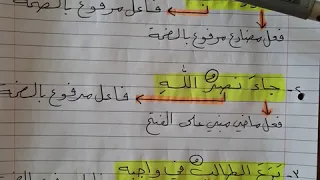 فاعل مرفوع بالضمة
فعل مضارع مرفوع بالضمة
٢- جاءَ نصرُ اللهِ
فاعل مرفوع بالضمة
فعل ماضي مبني على الفتح
٣- الطالبُ واجبه